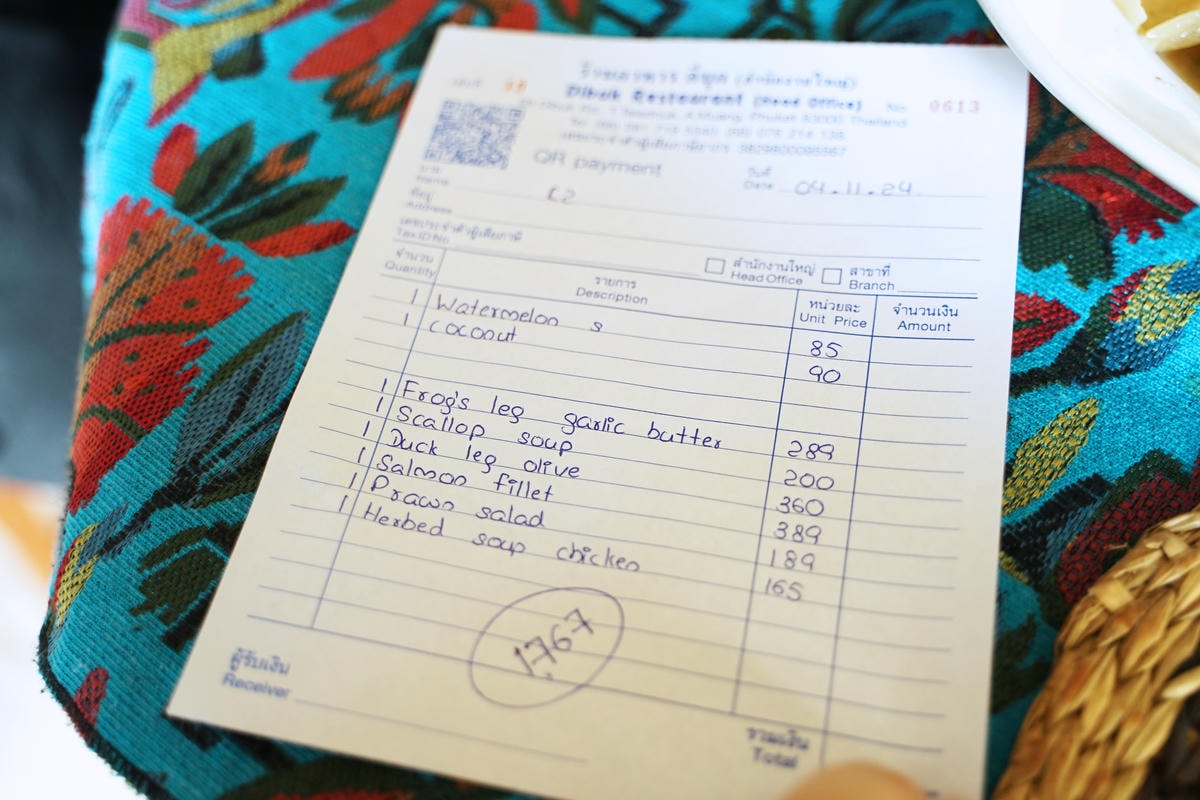 ร้านอาหาร ดีบุก (สำนักงานใหญ่)
Dibuk Restaurant (Head Office) No. 0613
A.Muang, Phuket 83000 Thailand
QR payment
วันที่
Date 04.11.24
นาม
Name E2
ที่อยู่
Address
เลขประจำตัวผู้เสียภาษี
Tax ID No.
สำนักงานใหญ่ สาขาที่
Head Office Branch
จำนวน รายการ หน่วยละ จำนวนเงิน
Quantity Description Unit Price Amount
1 Watermelon s 85
1 coconut 90
1 Frog's leg garlic butter 289
1 Scallop soup 200
1 Duck leg olive 360
1 Salmon fillet 389
1 Prawn salad 189
1 Herbed soup chicken 165
1767
ผู้รับเงิน
Receiver
รวมเงิน
Total